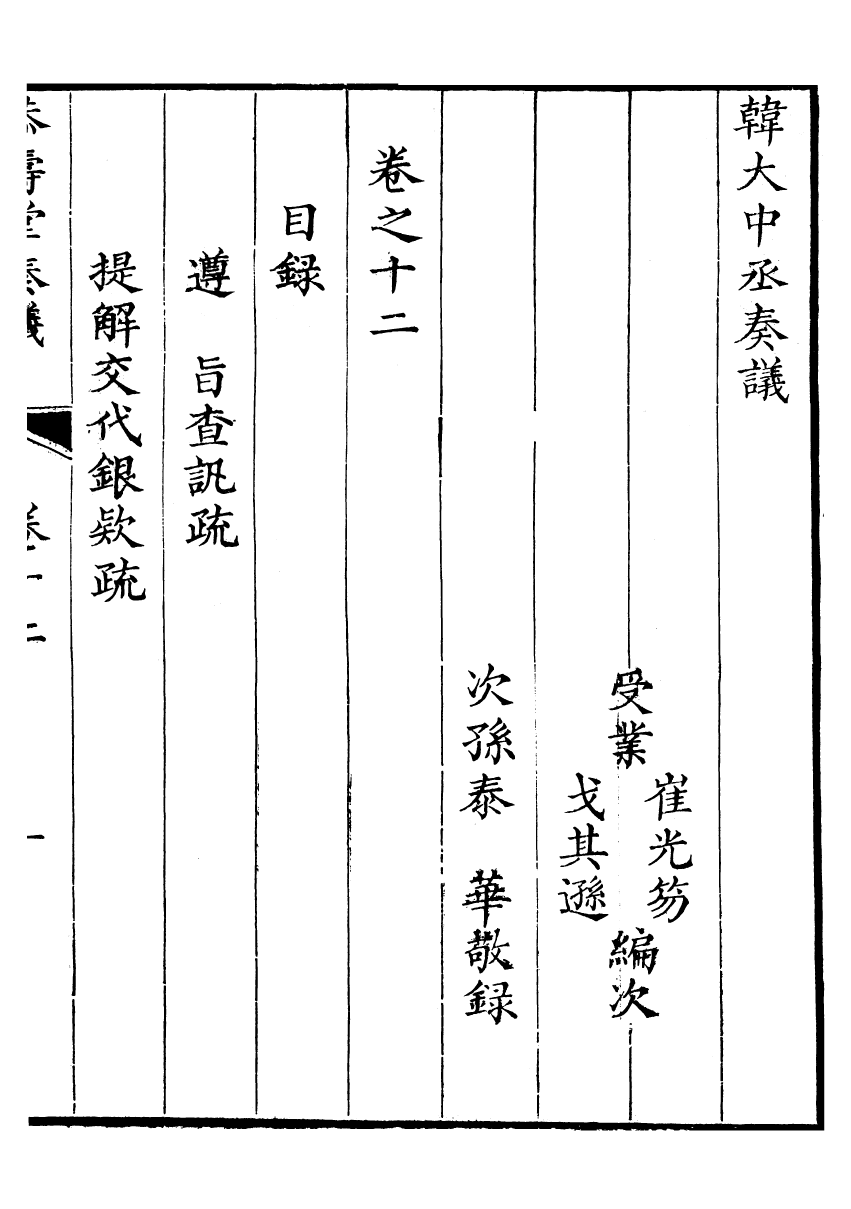 韓大中丞奏議
受業 崔光笏 戈其遜 編次
次孫泰 華敬録
卷之十二
目録
遵 旨查訊疏
提解交代銀欵疏
壽堂奏議 卷十二 一